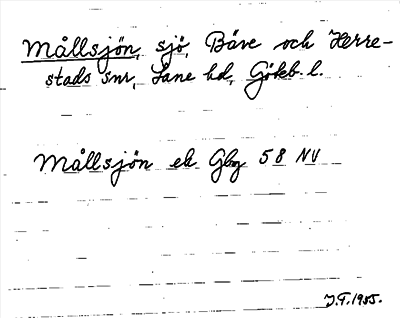 Mållsjön, sjö, Bäve och Herre-
stads snr, Lane hd, Gökb. l.
Mållsjön ek Gbg 58 NV
J.F. 1955.